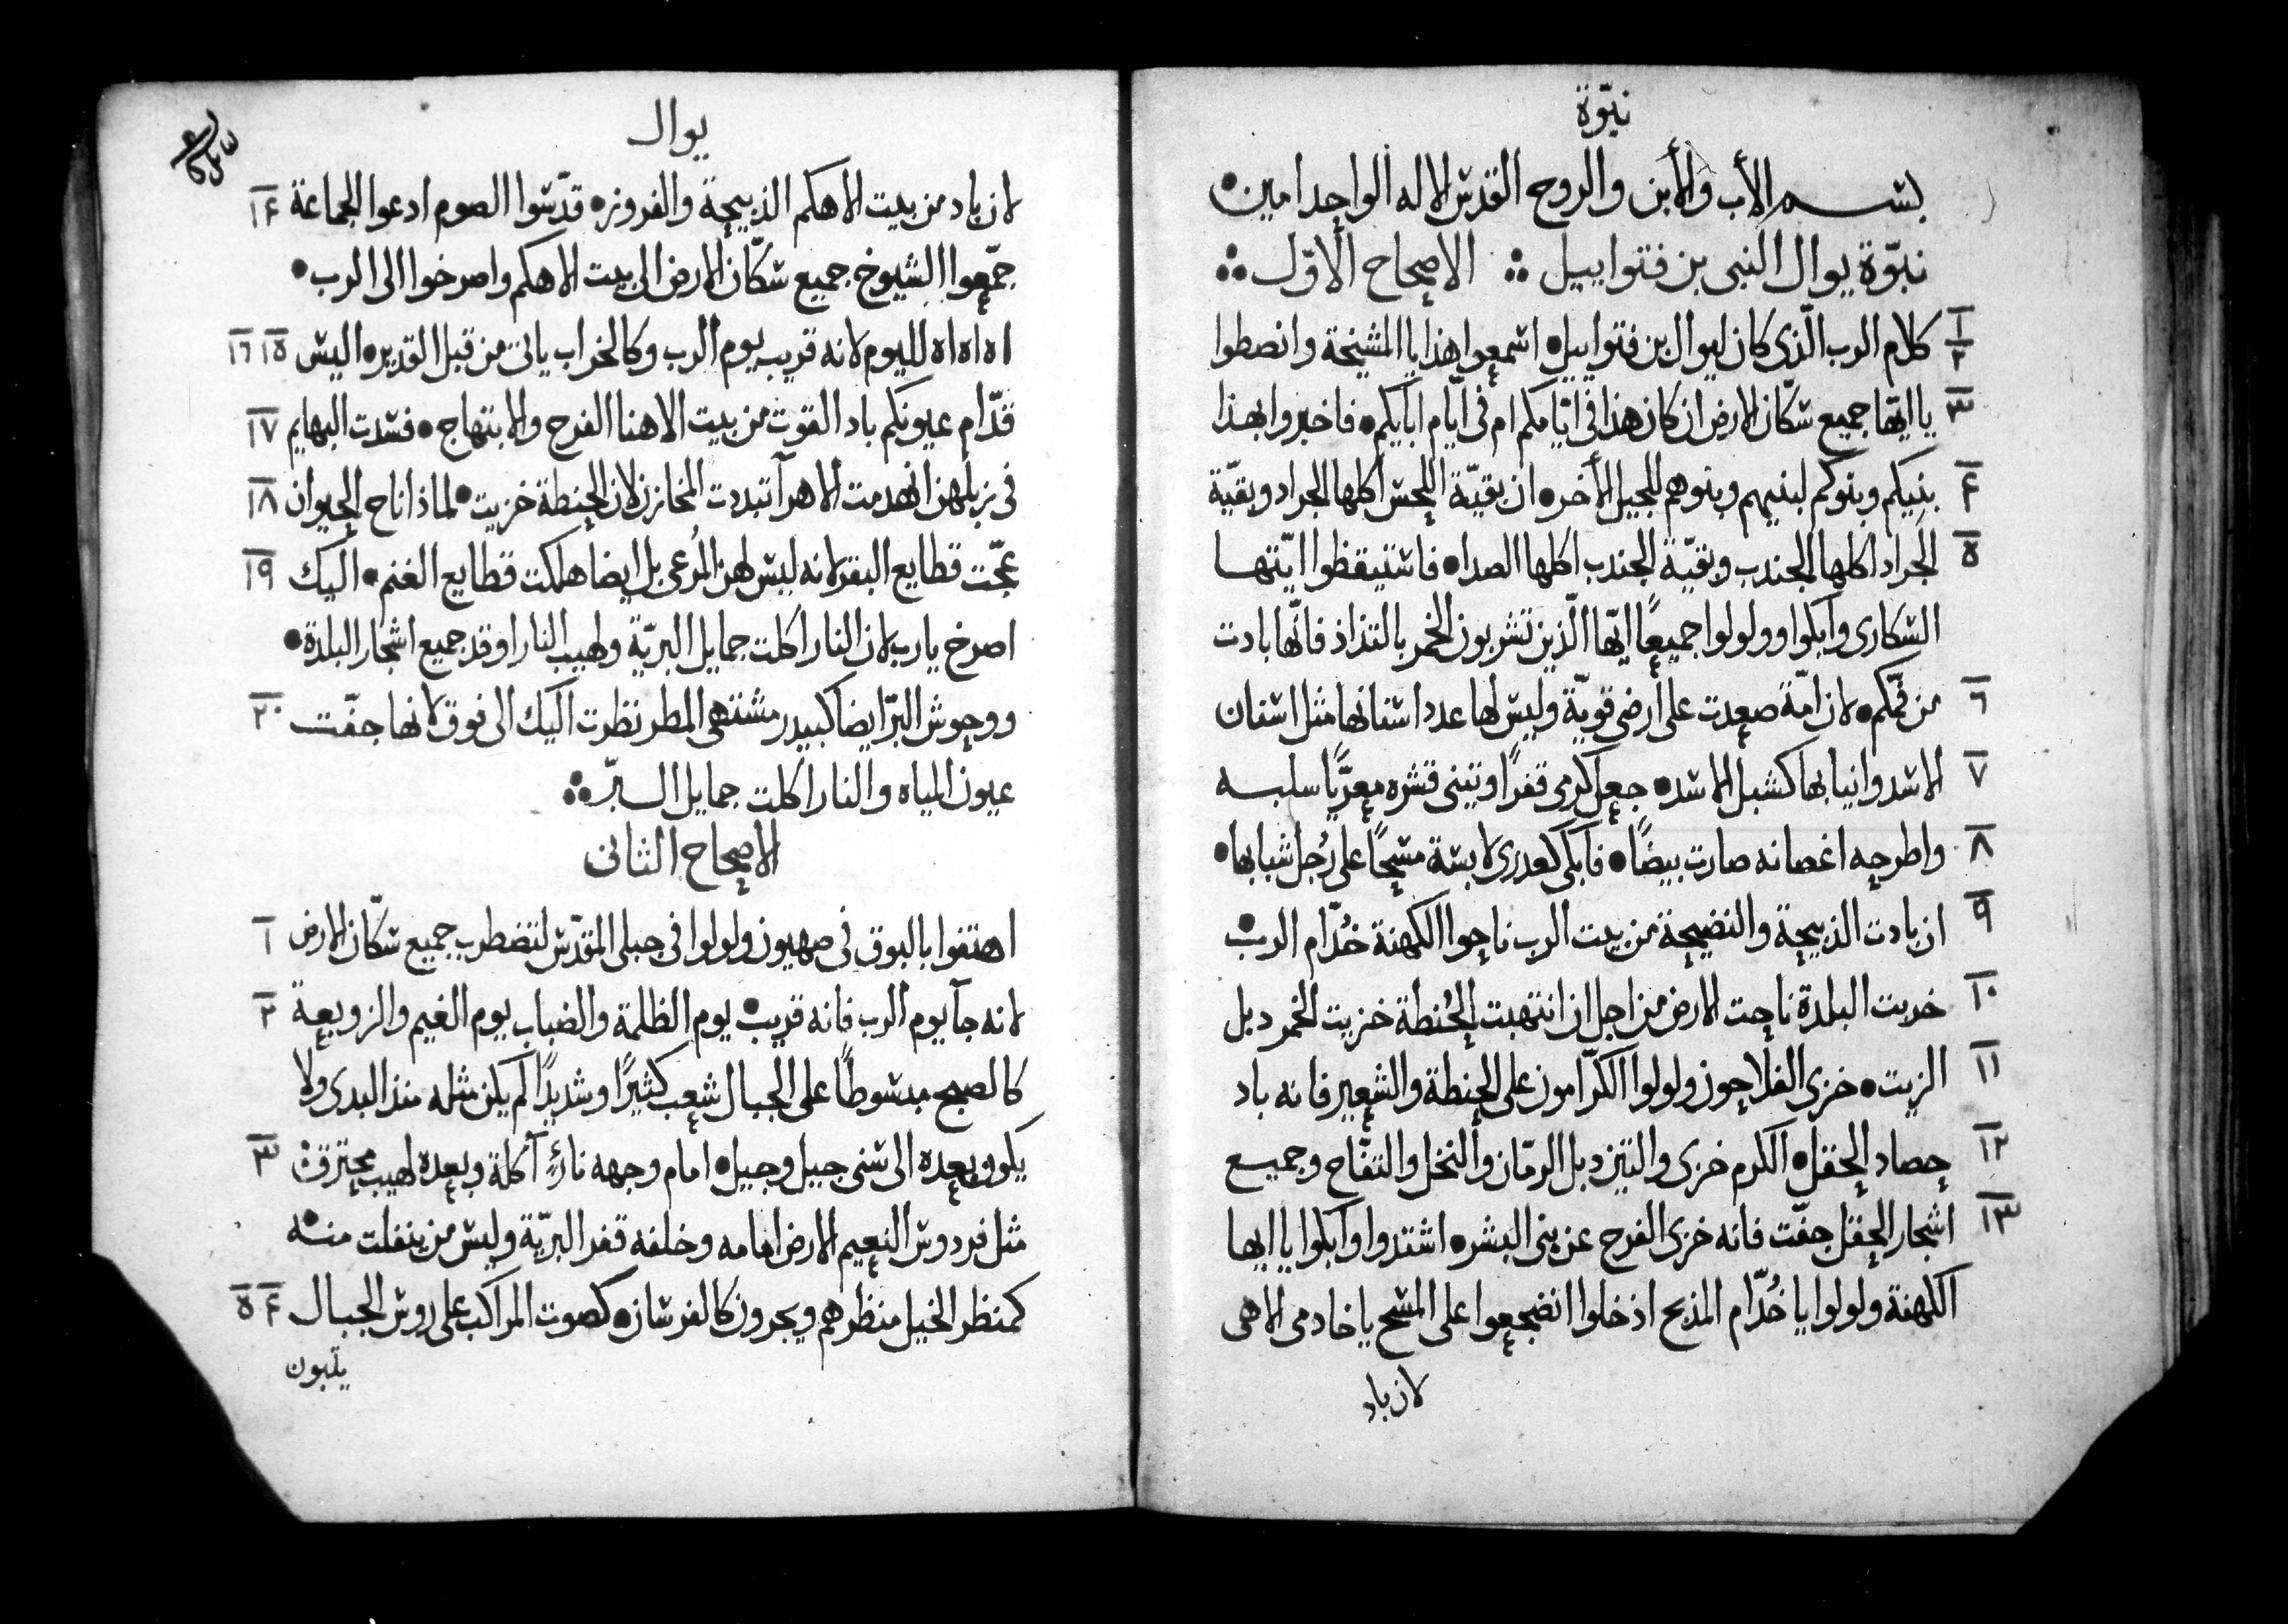 نبوّة
بسم الأب والأبن والروح القدس الاله الواحد امين
نبوّة يوال النبى بن فتواييل ؞ الاصحاح الاوّل ؞
١ ٢ كلام الرب الّذى كان ليوال بن فتواييل • اسمعوا هذا يا المشيخة وانصطوا
٣ يا ايّها جميع سكّان الارض ان كان هذا فى ايّامكم ام فى ايّام ابايكم • فاخبروا بهذا
٤ بنيكم وبنوكم لبنيهم وبنوهم للجيل الأخر • ان بقيّة اللحس اكلها الجراد وبقيّة
٥ الجراد اكلها الجندب وبقيّة الجندب اكلها الصدا • فاستيقظوا ايّتها
السكارى وابكوا وولولوا جميعًا ايّها الّذين تشربون الخمر بالتذاذ فانّها بادت
٦ من فمّكم • لان امّة صعدت على أرضى قويّة وليس لها عدد اسنانها مثل اسنان
٧ الاسد وانيابها كشبل الاسد • جعل كرمى قفرًا وتينى قشره معرّيًا سلبه
٨ واطرحه اغصانه صارت بيضًا • فابكى كعذرى لابسة مسحًا على رُجل شبابها •
٩ ان بادت الذبيحة والنضيحة من بيت الرب ناحوا الكهنة خُدّام الرب •
١٠ خربت البلدة ناحت الارض من اجل ان انتهبت الحُنطة خزيت الخمر دبل
١١ الزيت • خزى الفلاحون ولولوا الكرّامون على الحنطة والشعير فانه باد
١٢ حصاد الحقل • الكرم خزى والتين دبل الرمّان والنخل والتفّاح وجميع
١٣ اشجار الحقل جفّت فانه خزى الفرح عن بنى البشر • اشتدوا وابكوا يا ايها
الكهنة ولولوا يا خُدّام المذبح ادخلوا انضجعوا على المسح يا خادمى الاهى
لان باد
يوال
لان باد من بيت الاهكم الذبيحة والفروز • قدّسوا الصوم ادعوا الجماعة ١٤
جمّعوا الشيوخ جميع سكّان الارض الى بيت الاهكم واصرخوا الى الرب •
اه اه اه لليوم لانه قريب يوم الرب وكالخراب ياتى من قبل القدير • اليس ١٥ ١٦
قدّام عيونكم باد القوت من بيت الاهنا الفرح والابتهاج • فسدت البهايم ١٧
فى زبلهن انهدمت الاهرآ تبددت المخازن لان الحنطة خزيت • لماذا ناح الحيوان ١٨
عجّت قطايع البقر لانه ليس لهن المُرعى بل ايضا هلكت قطايع الغنم • اليك ١٩
اصرخ يارب لان النار اكلت جمايل البريّة ولهيب النار اوقد جميع اشجار البلدة •
ووحوش البرّ ايضا كبيدر مشتهى المطر نظرت اليك الى فوق لانها جفّت ٢٠
عيون المياه والنار اكلت جمايل البرّ ؞
الاصحاح الثانى
اهتفوا بالبوق فى صهيون ولولوا فى جبلى المقدّس لتضطرب جميع سكّان الارض ١
لانه جآ يوم الرب فانه قريب • يوم الظلمة والضباب يوم الغيم والزوبعة ٢
كالصبح مبسوطًا على الجبال شعب كثيرًا وشديدًا لم يكن مثله منذ البدى ولا
يكون بعده الى سنى جيل وجيل • امام وجهه نارٍ آكلة وبعده لهيب محترقة ٣
مثل فردوس النعيم الارض امامه وخلفه قفر البريّة وليس من ينفلت منه
كمنظر الخيل منظرهم ويجرون كالفرسان • كصوت المراكب على روس الجبال ٤ ٥
يثبون